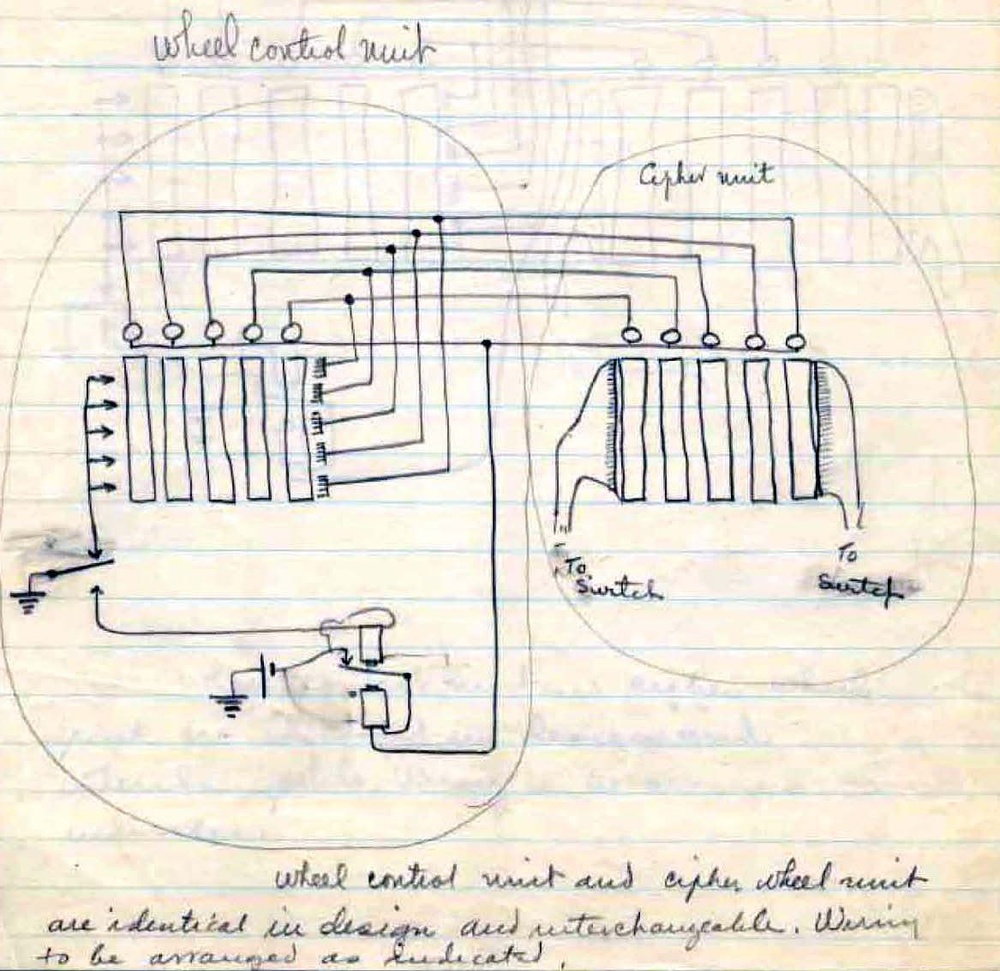 wheel control unit
Cipher unit
To
Switch
To
Switch
wheel control unit and cipher wheel unit
are identical in design and interchangeable. Wiring
to be arranged as indicated.